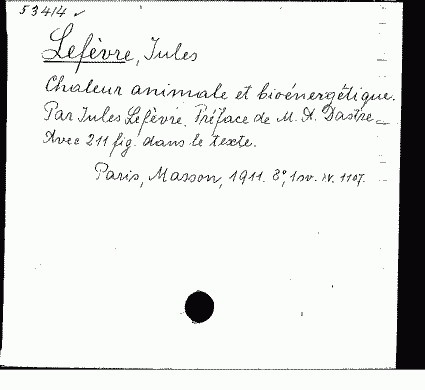 53414 ✓
Lefèvre, Jules
Chaleur animale et bioénergétique.
Par Jules Lefèvre. Préface de M. A. Dastre.
Avec 211 fig. dans le texte.
Paris, Masson, 1911. 8°, 1107.